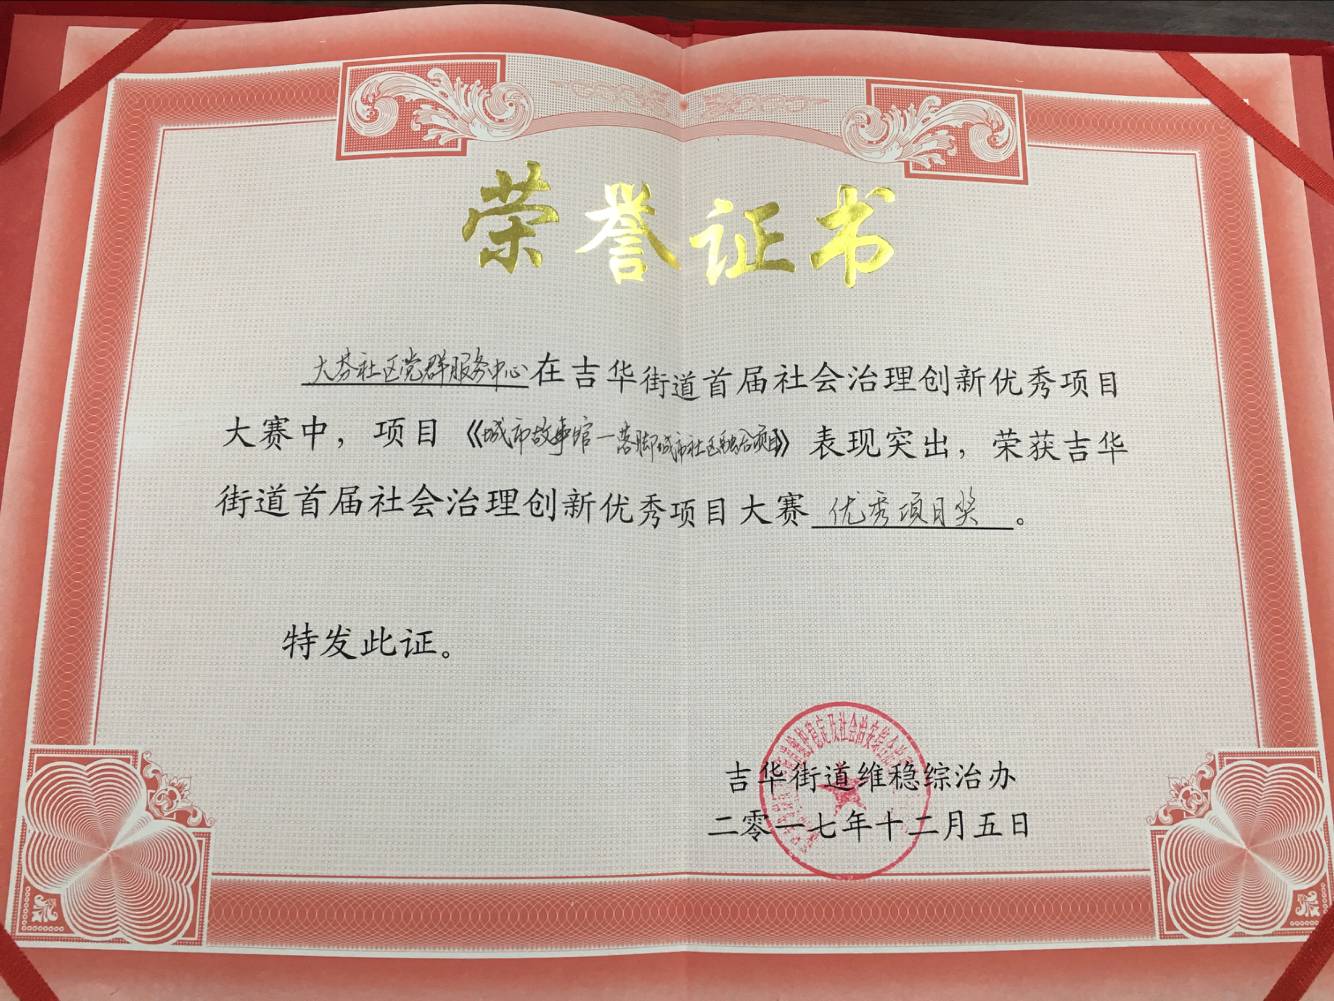 荣誉证书
大芬社区党群服务中心在吉华街道首届社会治理创新优秀项目
大赛中，项目《城市故事馆—落脚城市社区融合项目》表现突出，荣获吉华
街道首届社会治理创新优秀项目大赛 优秀项目奖 。
特发此证。
吉华街道维稳综治办
二零一七年十二月五日